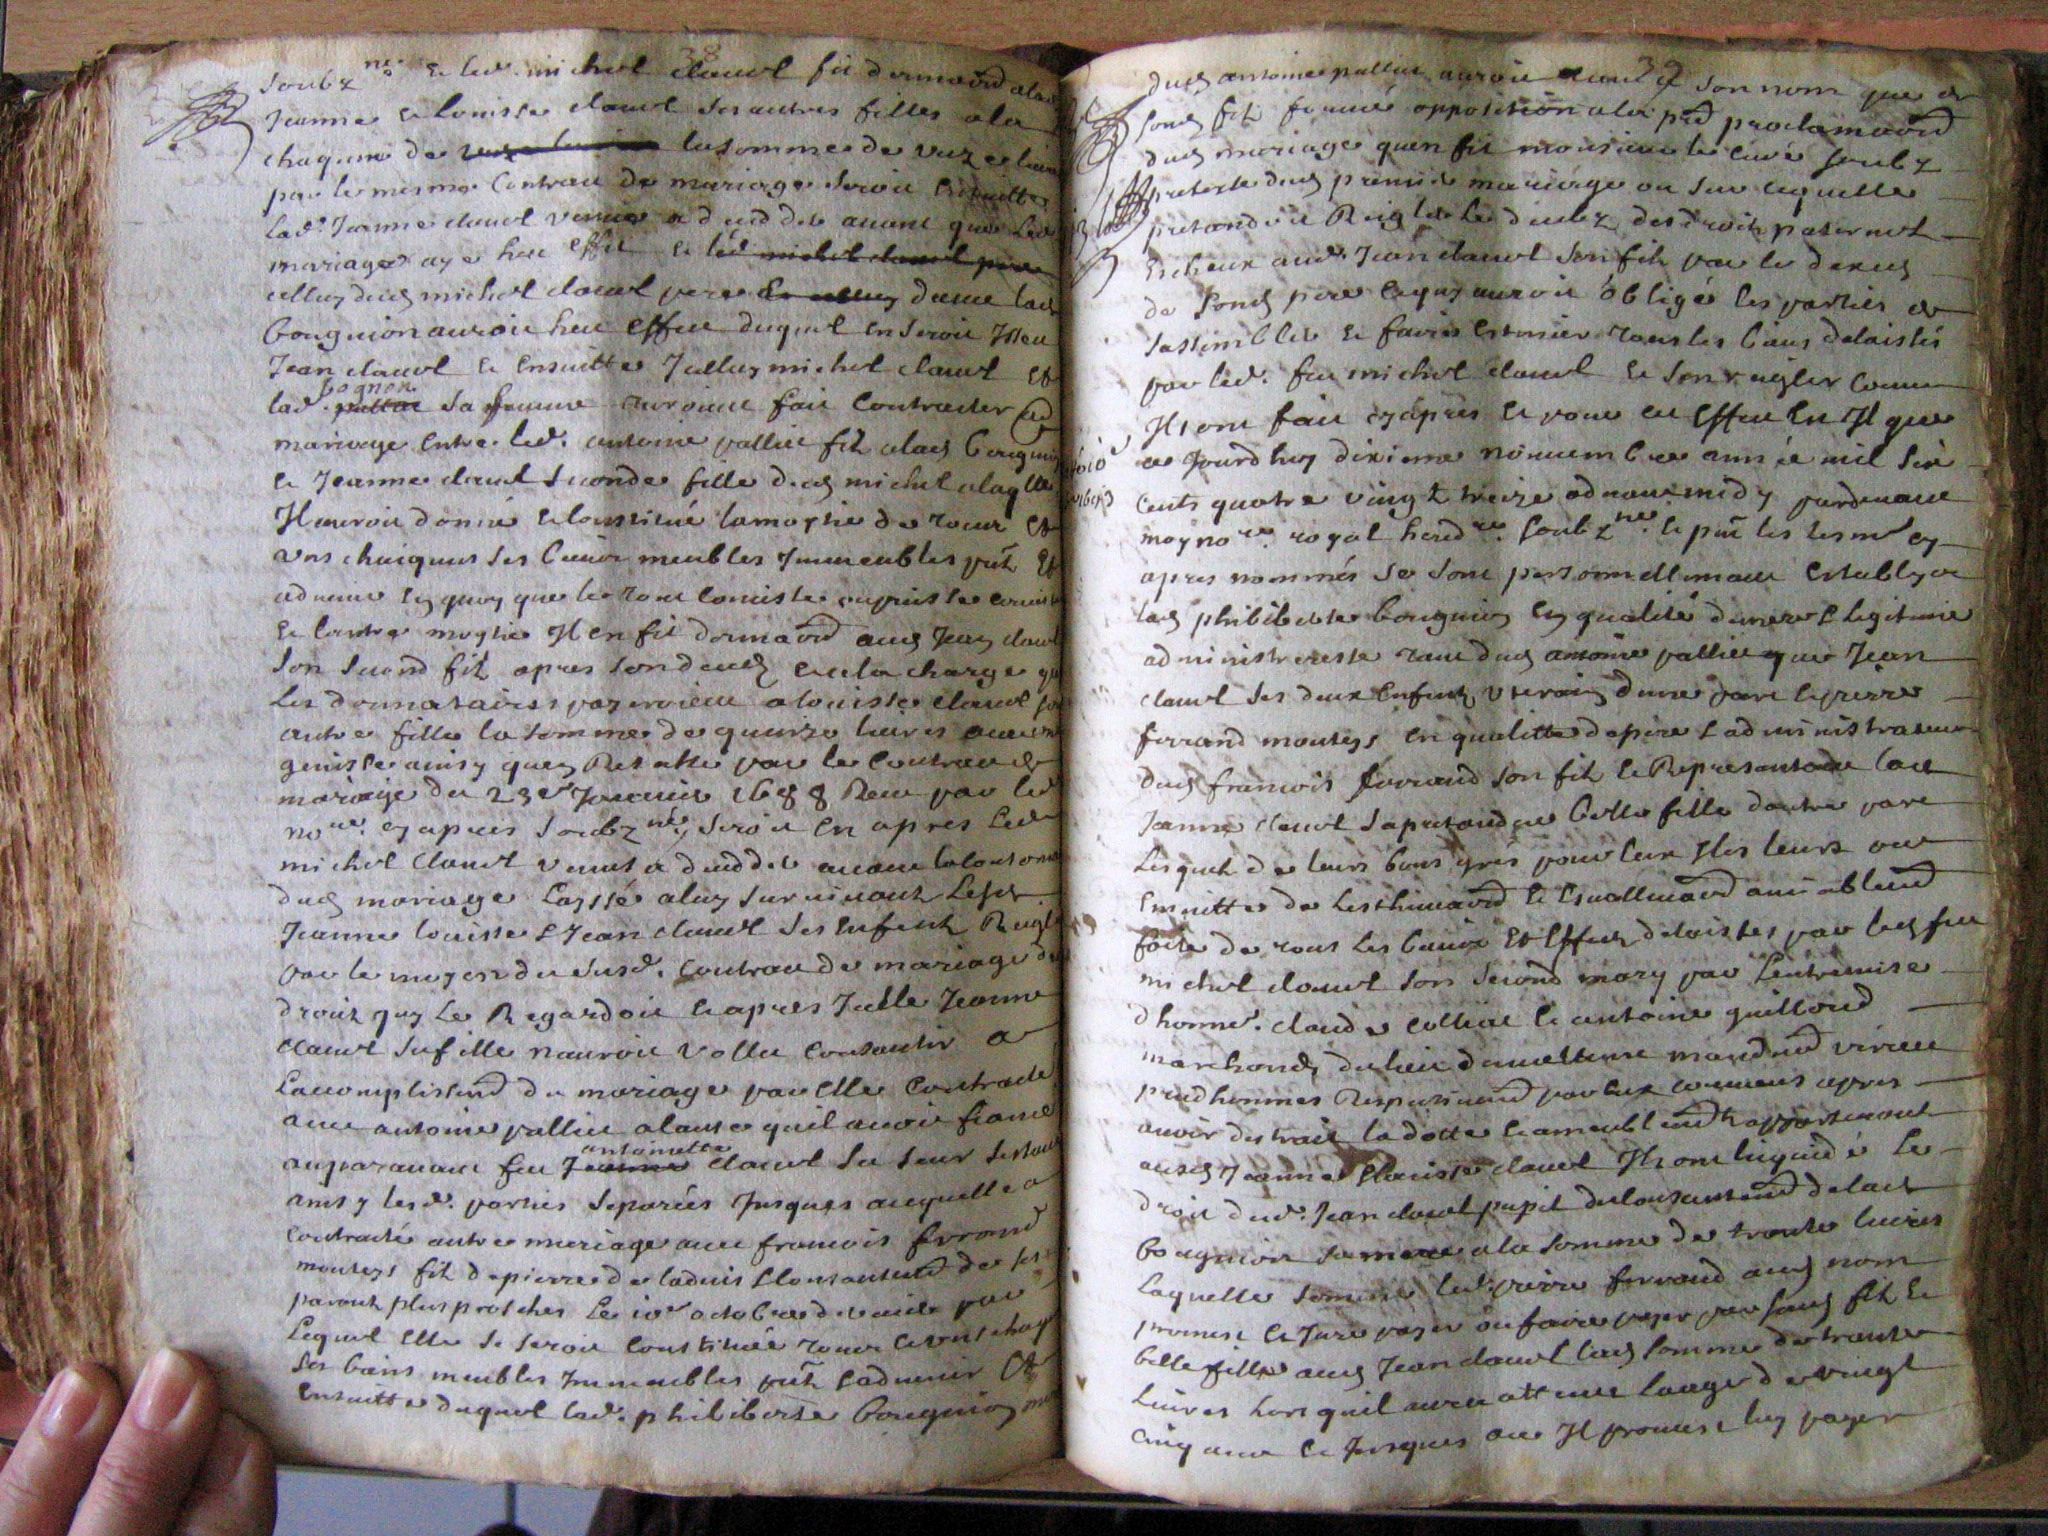 38
soubz ne. & led. michel clauel fit donnaõn a lad
Jeanne & Louisse clauel ses autres filles a la
chaqune de la somme de unze liures
par le mesme Contract de mariage seroit Ensuitte
lad. Jeanne clauel venue a decedder auant que led
mariage aye heu effet & led michel clauel pere
celluy dud michel clauel pere & celluy dame lad
bougnion auroit heu effect duquel en seroit Isseu
Jean clauel & Ensuitte Icelluy michel clauel et
bognon
lad. sa femme auroient fait Contracter
mariage entre led. antoine pallier fils a lad bougnion
& Jeanne clauel seconde fille dud michel a laqlle
Il auroit donné & constitué la moytié de tous et
uns chacuns ses biens meubles Immeubles pnts Et
aduenir En quoy que le tout consiste ou puisse consister
& l'autre moytie Il en fit donnaõn aud Jean clauel
son second fils apres son deces a la charge que
les donnataires payeroient a louisse clauel son
autre fille la somme de quinze liures auec une
genisse ainsy quen Resulte par le Contract de
mariage du 23e Januier 1688 Receu par led
nore. cy apres soubzne, seroit en apres led
michel clauel venus a decedder auant la consom
dud mariage Layssé a luy suruiuants lesd
Jeanne louisse & Jean clauel ses enfents Regle
par le moyen du susd. Contract de mariage des
droits quy les Regardoit & apres Icelle Jeanne
clauel sa fille n'auroit vollu consantir a
Laccomplissent du mariage par elle Contracté
auec antoine pallier a cause quil auoit fiancé
antoinette
auparauant feu Jeanne clauel sa seur sestant
ainsy lesd. parties separées Jusques a qu'elle a
contracté autre mariage auec francois ferrand
mouteys fils de pierre de laduis & consantent de ses
parents plus proches le 10e octobre dernier par
lequel Elle se seroit Constituée tous & uns chaqns
ses biens meubles Immeubles pnts & aduenir Et
Ensuitte duquel lad. philiberte bougnion mere
39
dud antoine pallier auroit tant a son nom que de
sond fils formée opposition a la pre proclamaõn
dud mariage quen fit monsieur le curé soubz
preteste dud premier mariage ou sur laquelle
pretandoit Reigler les dictz des droits paternels
Escheux aud. Jean clauel son fils par le deces
de sond pere ce quy auroit obligé les parties de
s'assembler & faire estimer tous les biens delaissés
par led. feu michel clauel & s'en reigler comme
Ils ont fait cy apres & pour cet effect En Il que
ce Jourdhuy dixieme nouembre année mil six
cents quatre vingt treize ad auant midy pardeuant
moy nore. royal heredre. soubzne. & pnt les tesms cy
apres nommés se sont personnellement establys
lad philiberte bougnion En qualité de mere & legitime
administreresse tant dud antoine pallier que Jean
clauel ses deux enfents vterains dune part & pierre
ferrand mouteys en qualitté de pere & administrateur
dud francois ferrand son fils & Representant lad
Jeanne clauel sa pretandue belle fille dautre part
Lesquels de leurs bons grés pour eux & les leurs ont
Ensuitte de lesthimaõn & Euallluaõn amiablemt
faite de tous les biens Et Effects delaissés par led feu
michel clauel son second mary par l'entremise
dhonne. claude collier & antoine guillioud
marchands du lieu dumettene mandemt virieu
prudhommes Respectiuemt par eux conuenus apres
auoir distrait la dotte & ameublemt appartenant
ausd Jeanne & louisse clauel Ils ont liquidé le
droit dud. Jean clauel pupil du consantemt de lad
bougnion sa mere a la somme de trente liures
laquelle somme led. pierre ferrand aud nom
promest & Jure payer ou faire payer par sond fils &
belle fille aud Jean clauel lad somme de trente
liures lors quil aura atteint laage de vingt
cinq ans & Jusques a ce Il promest luy payer